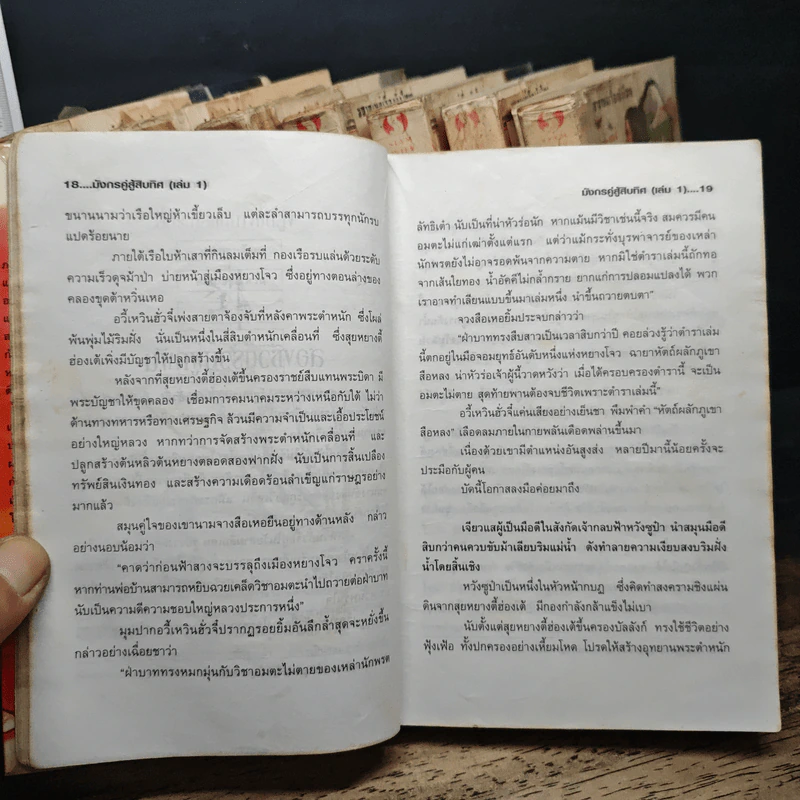 18....มังกรคู่สู้สิบทิศ (เล่ม 1)
ขนานนามว่าเรือใหญ่ห้าเขี้ยวเล็บ แต่ละลำสามารถบรรทุกนักรบ
แปดร้อยนาย
ภายใต้เรือใบห้าเสาที่กินลมเต็มที่ กองเรือรบแล่นด้วยระดับ
ความเร็วดุจม้าป่า บ่ายหน้าสู่เมืองหยางโจว ซึ่งอยู่ทางตอนล่างของ
คลองขุดต้าหวิ่นเหอ
อวี้เหวินฮั่วจี๋เพ่งสายตาจ้องจับที่หลังคาพระตำหนัก ซึ่งโผล่
พ้นพุ่มไม้ริมฝั่ง นั่นเป็นหนึ่งในสี่สิบตำหนักเคลื่อนที่ ซึ่งสุยหยางตี้
ฮ่องเต้เพิ่งมีบัญชาให้ปลูกสร้างขึ้น
หลังจากที่สุยหยางตี้ฮ่องเต้ขึ้นครองราชย์สืบแทนพระบิดา มี
พระบัญชาให้ขุดคลอง เชื่อมการคมนาคมระหว่างเหนือกับใต้ ไม่ว่า
ด้านทางทหารหรือทางเศรษฐกิจ ล้วนมีความจำเป็นและเอื้อประโยชน์
อย่างใหญ่หลวง หากทว่าการจัดสร้างพระตำหนักเคลื่อนที่ และ
ปลูกสร้างต้นหลิวต้นหยางตลอดสองฟากฝั่ง นับเป็นการสิ้นเปลือง
ทรัพย์สินเงินทอง และสร้างความเดือดร้อนลำเข็ญแก่ราษฎรอย่าง
มากแล้ว
สมุนคู่ใจของเขานามจางสือเหอยืนอยู่ทางด้านหลัง กล่าว
อย่างนอบน้อมว่า
"คาดว่าก่อนฟ้าสางจะบรรลุถึงเมืองหยางโจว คราครั้งนี้
หากท่านพ่อบ้านสามารถหยิบฉวยเคล็ดวิชาอมตะนำไปถวายต่อฝ่าบาท
นับเป็นความดีความชอบใหญ่หลวงประการหนึ่ง"
มุมปากอวี้เหวินฮั่วจี๋ปรากฏรอยยิ้มอันลึกล้ำสุดจะหยั่งขึ้น
กล่าวอย่างเฉื่อยชาว่า
"ฝ่าบาททรงหมกมุ่นกับวิชาอมตะไม่ตายของเหล่านักพรต
มังกรคู่สู้สิบทิศ (เล่ม 1)....19
ลัทธิเต๋า นับเป็นที่น่าหัวร่อนัก หากแม้นมีวิชาเช่นนี้จริง สมควรมีคน
อมตะไม่แก่เฒ่าตั้งแต่แรก แต่ว่าแม้กระทั่งบุรพาจารย์ของเหล่า
นักพรตยังไม่อาจรอดพ้นจากความตาย หากมิใช่ตำราเล่มนี้ถักทอ
จากเส้นใยทอง น้ำอัคคีไม่กล้ำกราย ยากแก่การปลอมแปลงได้ พวก
เราอาจทำเลียนแบบขึ้นมาเล่มหนึ่ง นำขึ้นถวายตบตา"
จวงสือเหอยิ้มประจบกล่าวว่า
"ฝ่าบาททรงสืบสาวเป็นเวลาสิบกว่าปี คอยล่วงรู้ว่าตำราเล่ม
นี้ตกอยู่ในมือจอมยุทธ์อันดับหนึ่งแห่งหยางโจว ฉายาหัตถ์ผลักภูเขา
สือหลง น่าหัวร่อเจ้าผู้นี้วาดหวังว่า เมื่อได้ครอบครองตำรานี้ จะเป็น
อมตะไม่ตาย สุดท้ายพานต้องจบชีวิตเพราะตำราเล่มนี้"
อวี้เหวินฮั่วจี๋แค่นเสียงอย่างเย็นชา พึมพำคำ "หัตถ์ผลักภูเขา
สือหลง" เลือดลมภายในกายพลันเดือดพล่านขึ้นมา
เนื่องด้วยเขามีตำแหน่งอันสูงส่ง หลายปีมานี้น้อยครั้งจะ
ประมือกับผู้คน
บัดนี้โอกาสลงมือค่อยมาถึง
เจียวแสผู้เป็นมือดีในสังกัดเจ้ากลบฟ้าหวังซูป๋า นำสมุนมือดี
สิบกว่าคนควบขับม้าเลียบริมแม่น้ำ ดังทำลายความเงียบสงบริมฝั่ง
น้ำโดยสิ้นเชิง
หวังซูป๋าเป็นหนึ่งในหัวหน้ากบฏ ซึ่งคิดทำสงครามชิงแผ่น
ดินจากสุยหยางตี้ฮ่องเต้ มีกองกำลังกล้าแข็งไม่เบา
นับตั้งแต่สุยหยางตี้ฮ่องเต้ขึ้นครองบัลลังก์ ทรงใช้ชีวิตอย่าง
ฟุ้งเฟ้อ ทั้งปกครองอย่างเหี้ยมโหด โปรดให้สร้างอุทยานพระตำหนัก